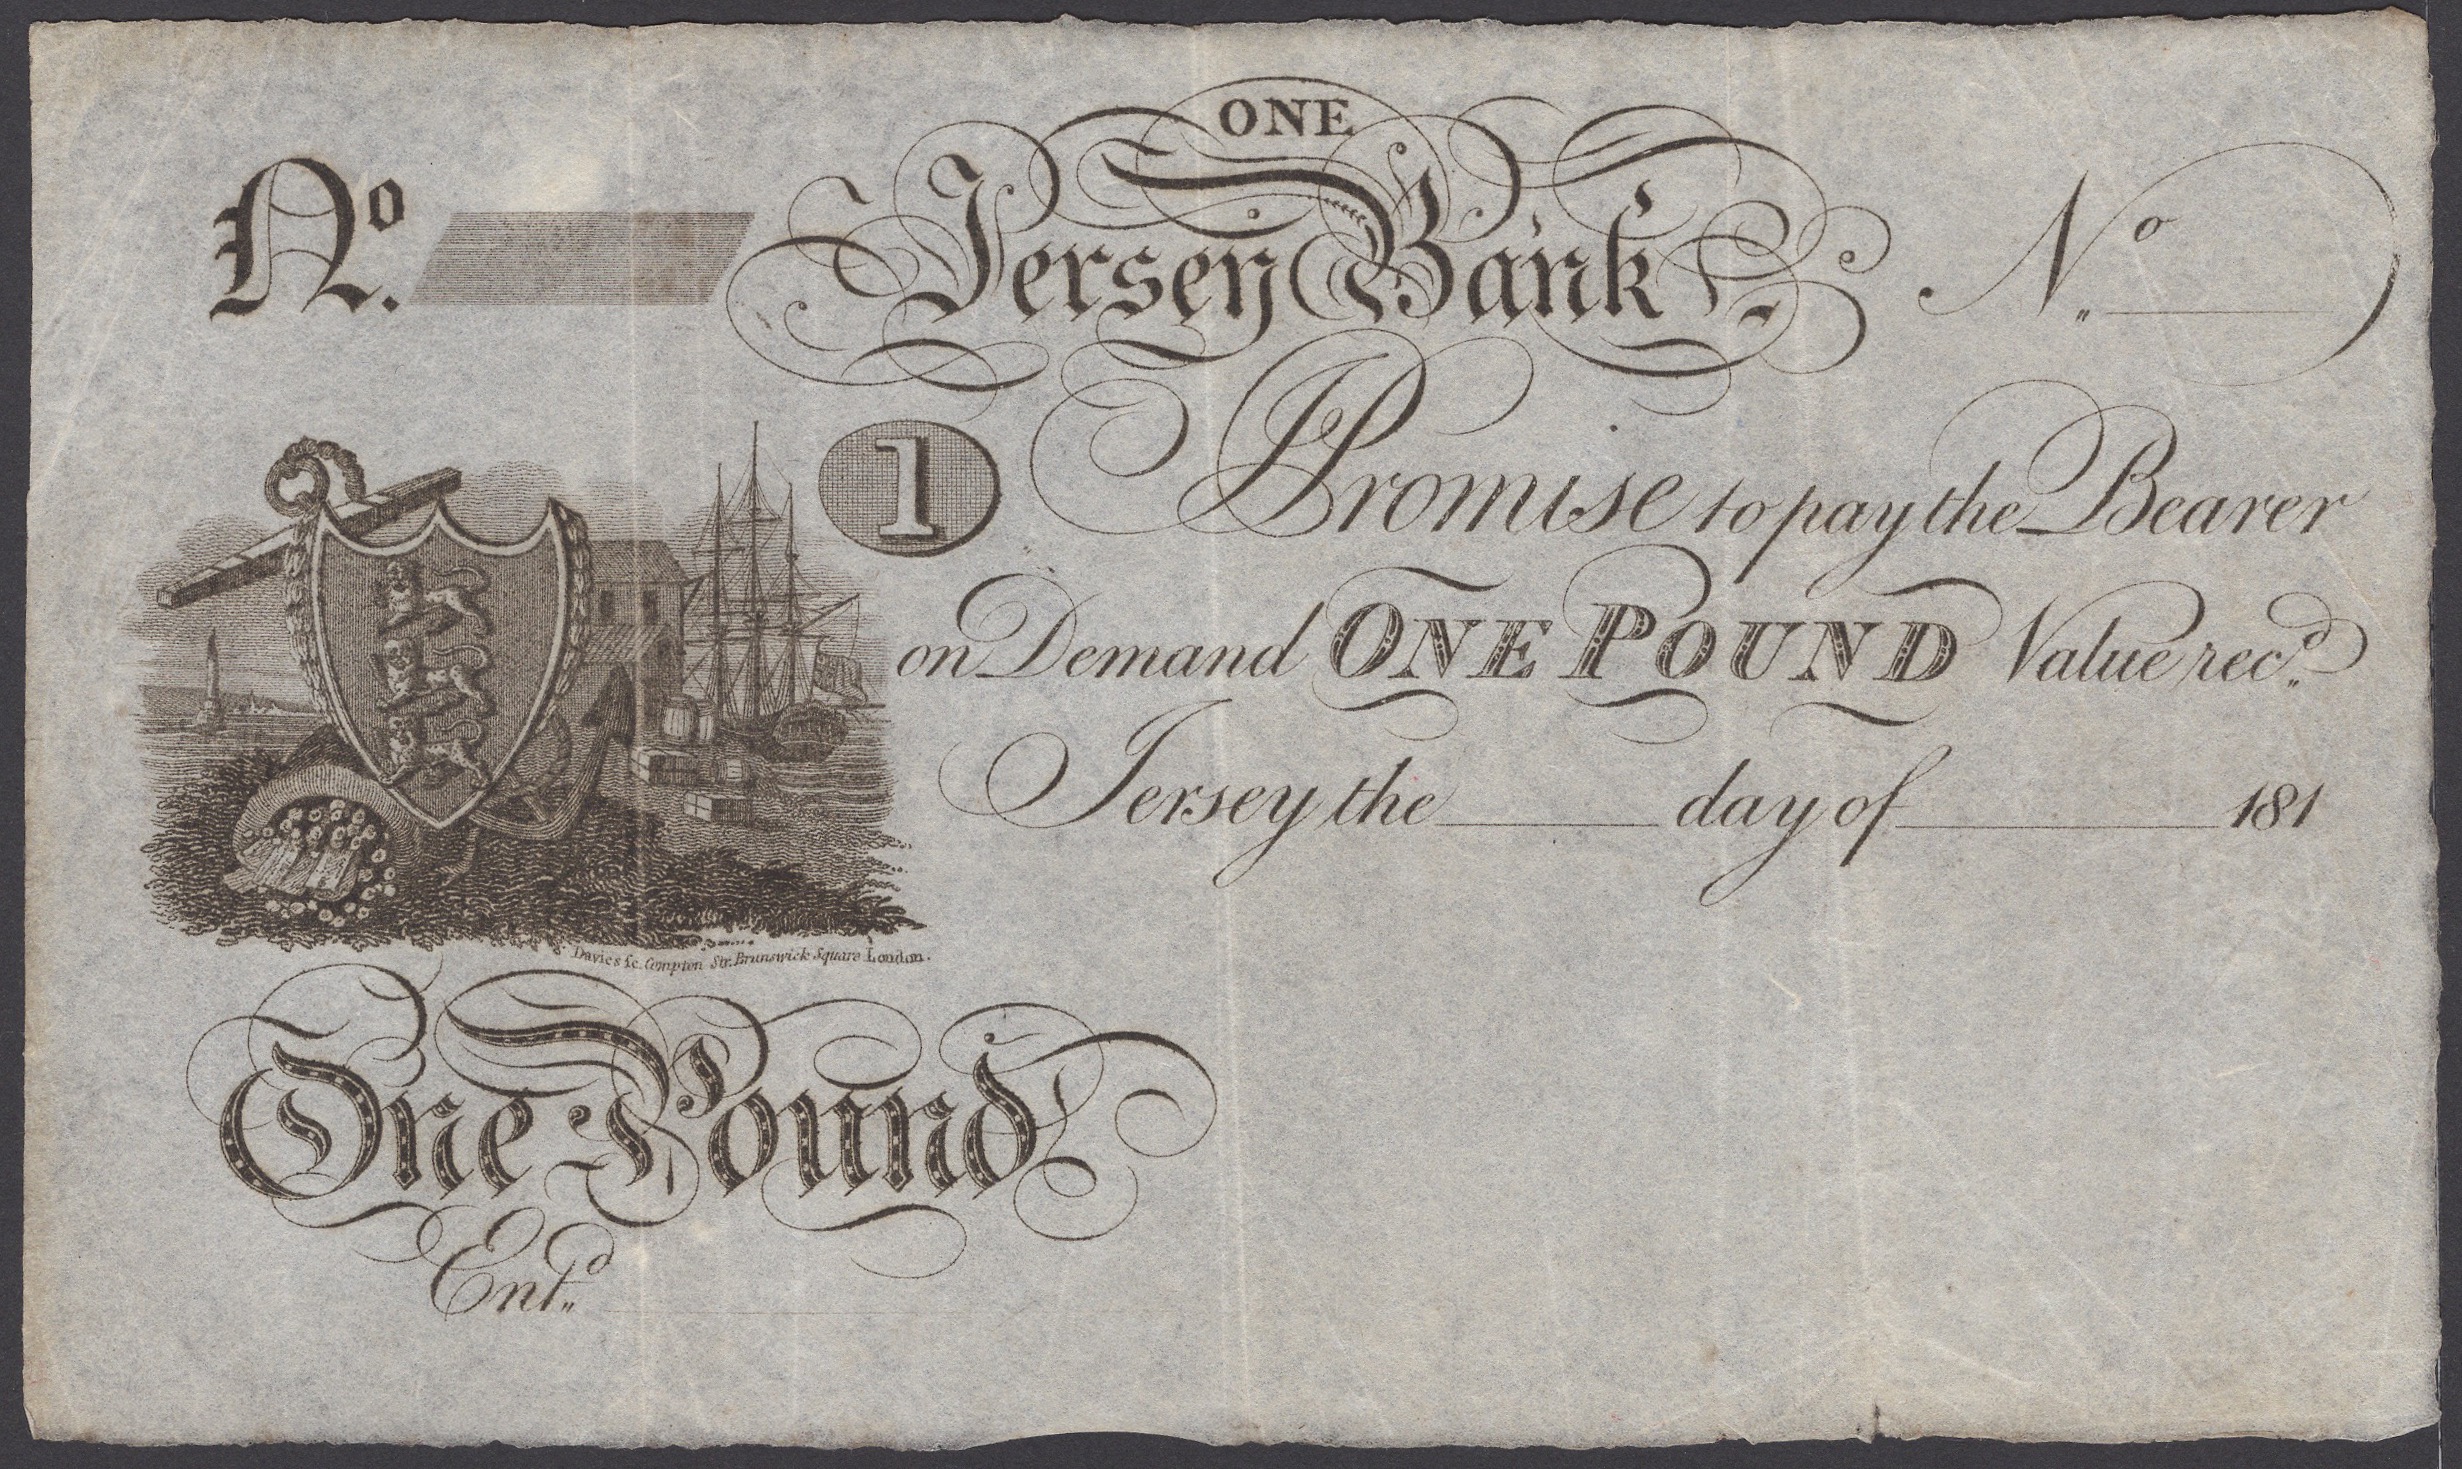 ONE
No. Jersey Bank No.
1 I Promise to pay the Bearer
on Demand ONE POUND Value recd.
Jersey the day of 181
Davies sc. Compton Str. Brunswick Square London.
One Pound
Entd.